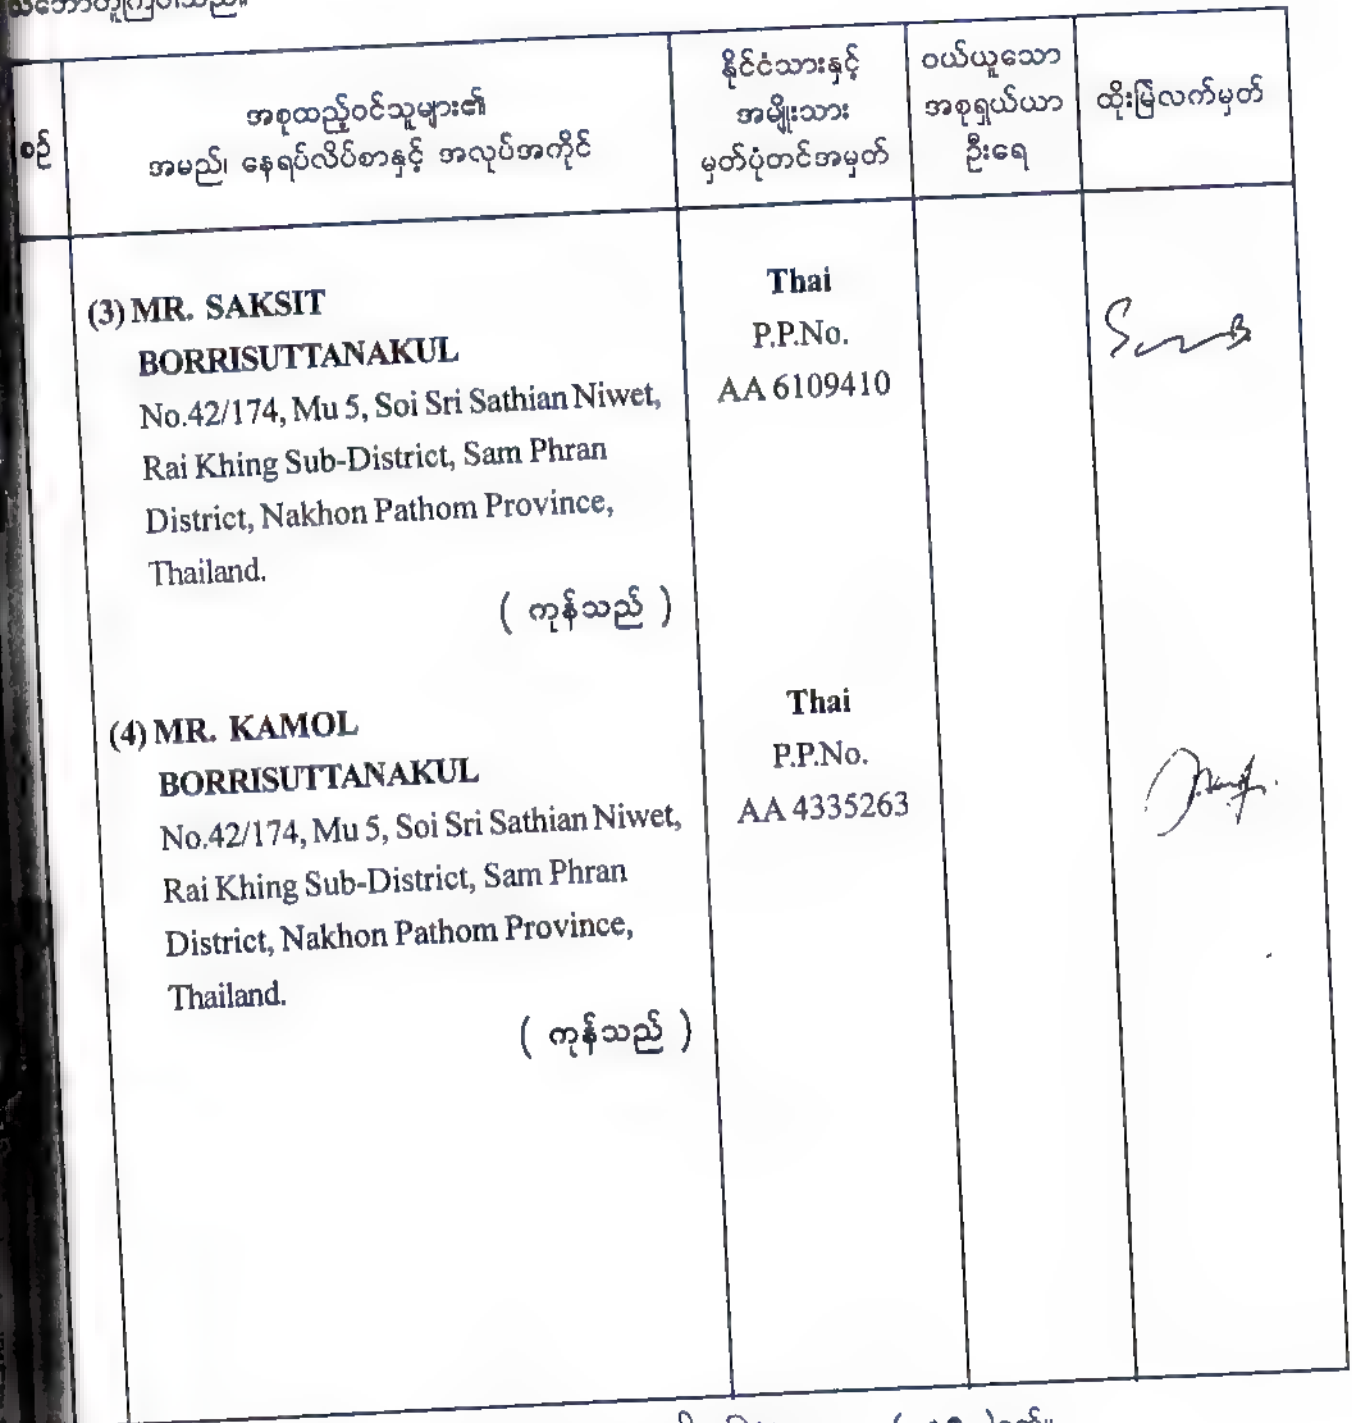 စဉ်
အစုထည့်ဝင်သူများ၏
အမည်၊ နေရပ်လိပ်စာနှင့် အလုပ်အကိုင်
နိုင်ငံသားနှင့်
အမျိုးသား
မှတ်ပုံတင်အမှတ်
ဝယ်ယူသော
အစုရှယ်ယာ
ဦးရေ
ထိုးမြဲလက်မှတ်
(3) MR. SAKSIT
BORRISUTTANAKUL
No.42/174, Mu 5, Soi Sri Sathian Niwet,
Rai Khing Sub-District, Sam Phran
District, Nakhon Pathom Province,
Thailand.
( ကုန်သည် )
Thai
P.P.No.
AA 6109410
(4) MR. KAMOL
BORRISUTTANAKUL
No.42/174, Mu 5, Soi Sri Sathian Niwet,
Rai Khing Sub-District, Sam Phran
District, Nakhon Pathom Province,
Thailand.
( ကုန်သည် )
Thai
P.P.No.
AA 4335263